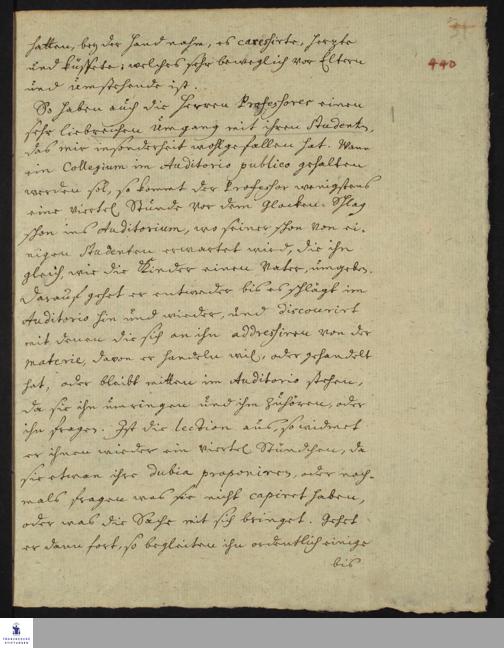 440
hatten, bey der Hand nahm, es caressirte, herzte
und küssete; welches sehr beweglich vor Eltern
und Umstehende ist.
So haben auch die Herren Professores einen
sehr liebreichen Umgang mit ihren Studenten,
das mir insonderheit wohlgefallen hat. Wenn
ein Collegium im Auditorio publico gehalten
werden sol, so kommt der Professor wenigstens
eine viertel Stunde vor dem Glocken-Schlag
schon ins Auditorium, wo seiner schon von ei-
nigen Studenten erwartet wird, die ihn
gleich wie die Kinder einen Vater, umgeben.
Darauf gehet er entweder bis es schlägt im
Auditorio hin und wieder, und discourirt
mit denen die sich an ihn addressiren von der
materie, davon er handeln wil, oder gehandelt
hat, oder bleibt mitten im Auditorio stehen,
da sie ihn umringen und ihm zuhören, oder
ihn fragen. Ist die lection aus, so widmet
er ihnen wieder ein viertel Stündchen, da
sie etwan ihre dubia proponiren, oder noch-
mals fragen was sie nicht capiret haben,
oder was die Sache mit sich bringet. Gehet
er dann fort, so begleiten ihn ordentlich einige
bis
FRANCKESCHE
STIFTUNGEN